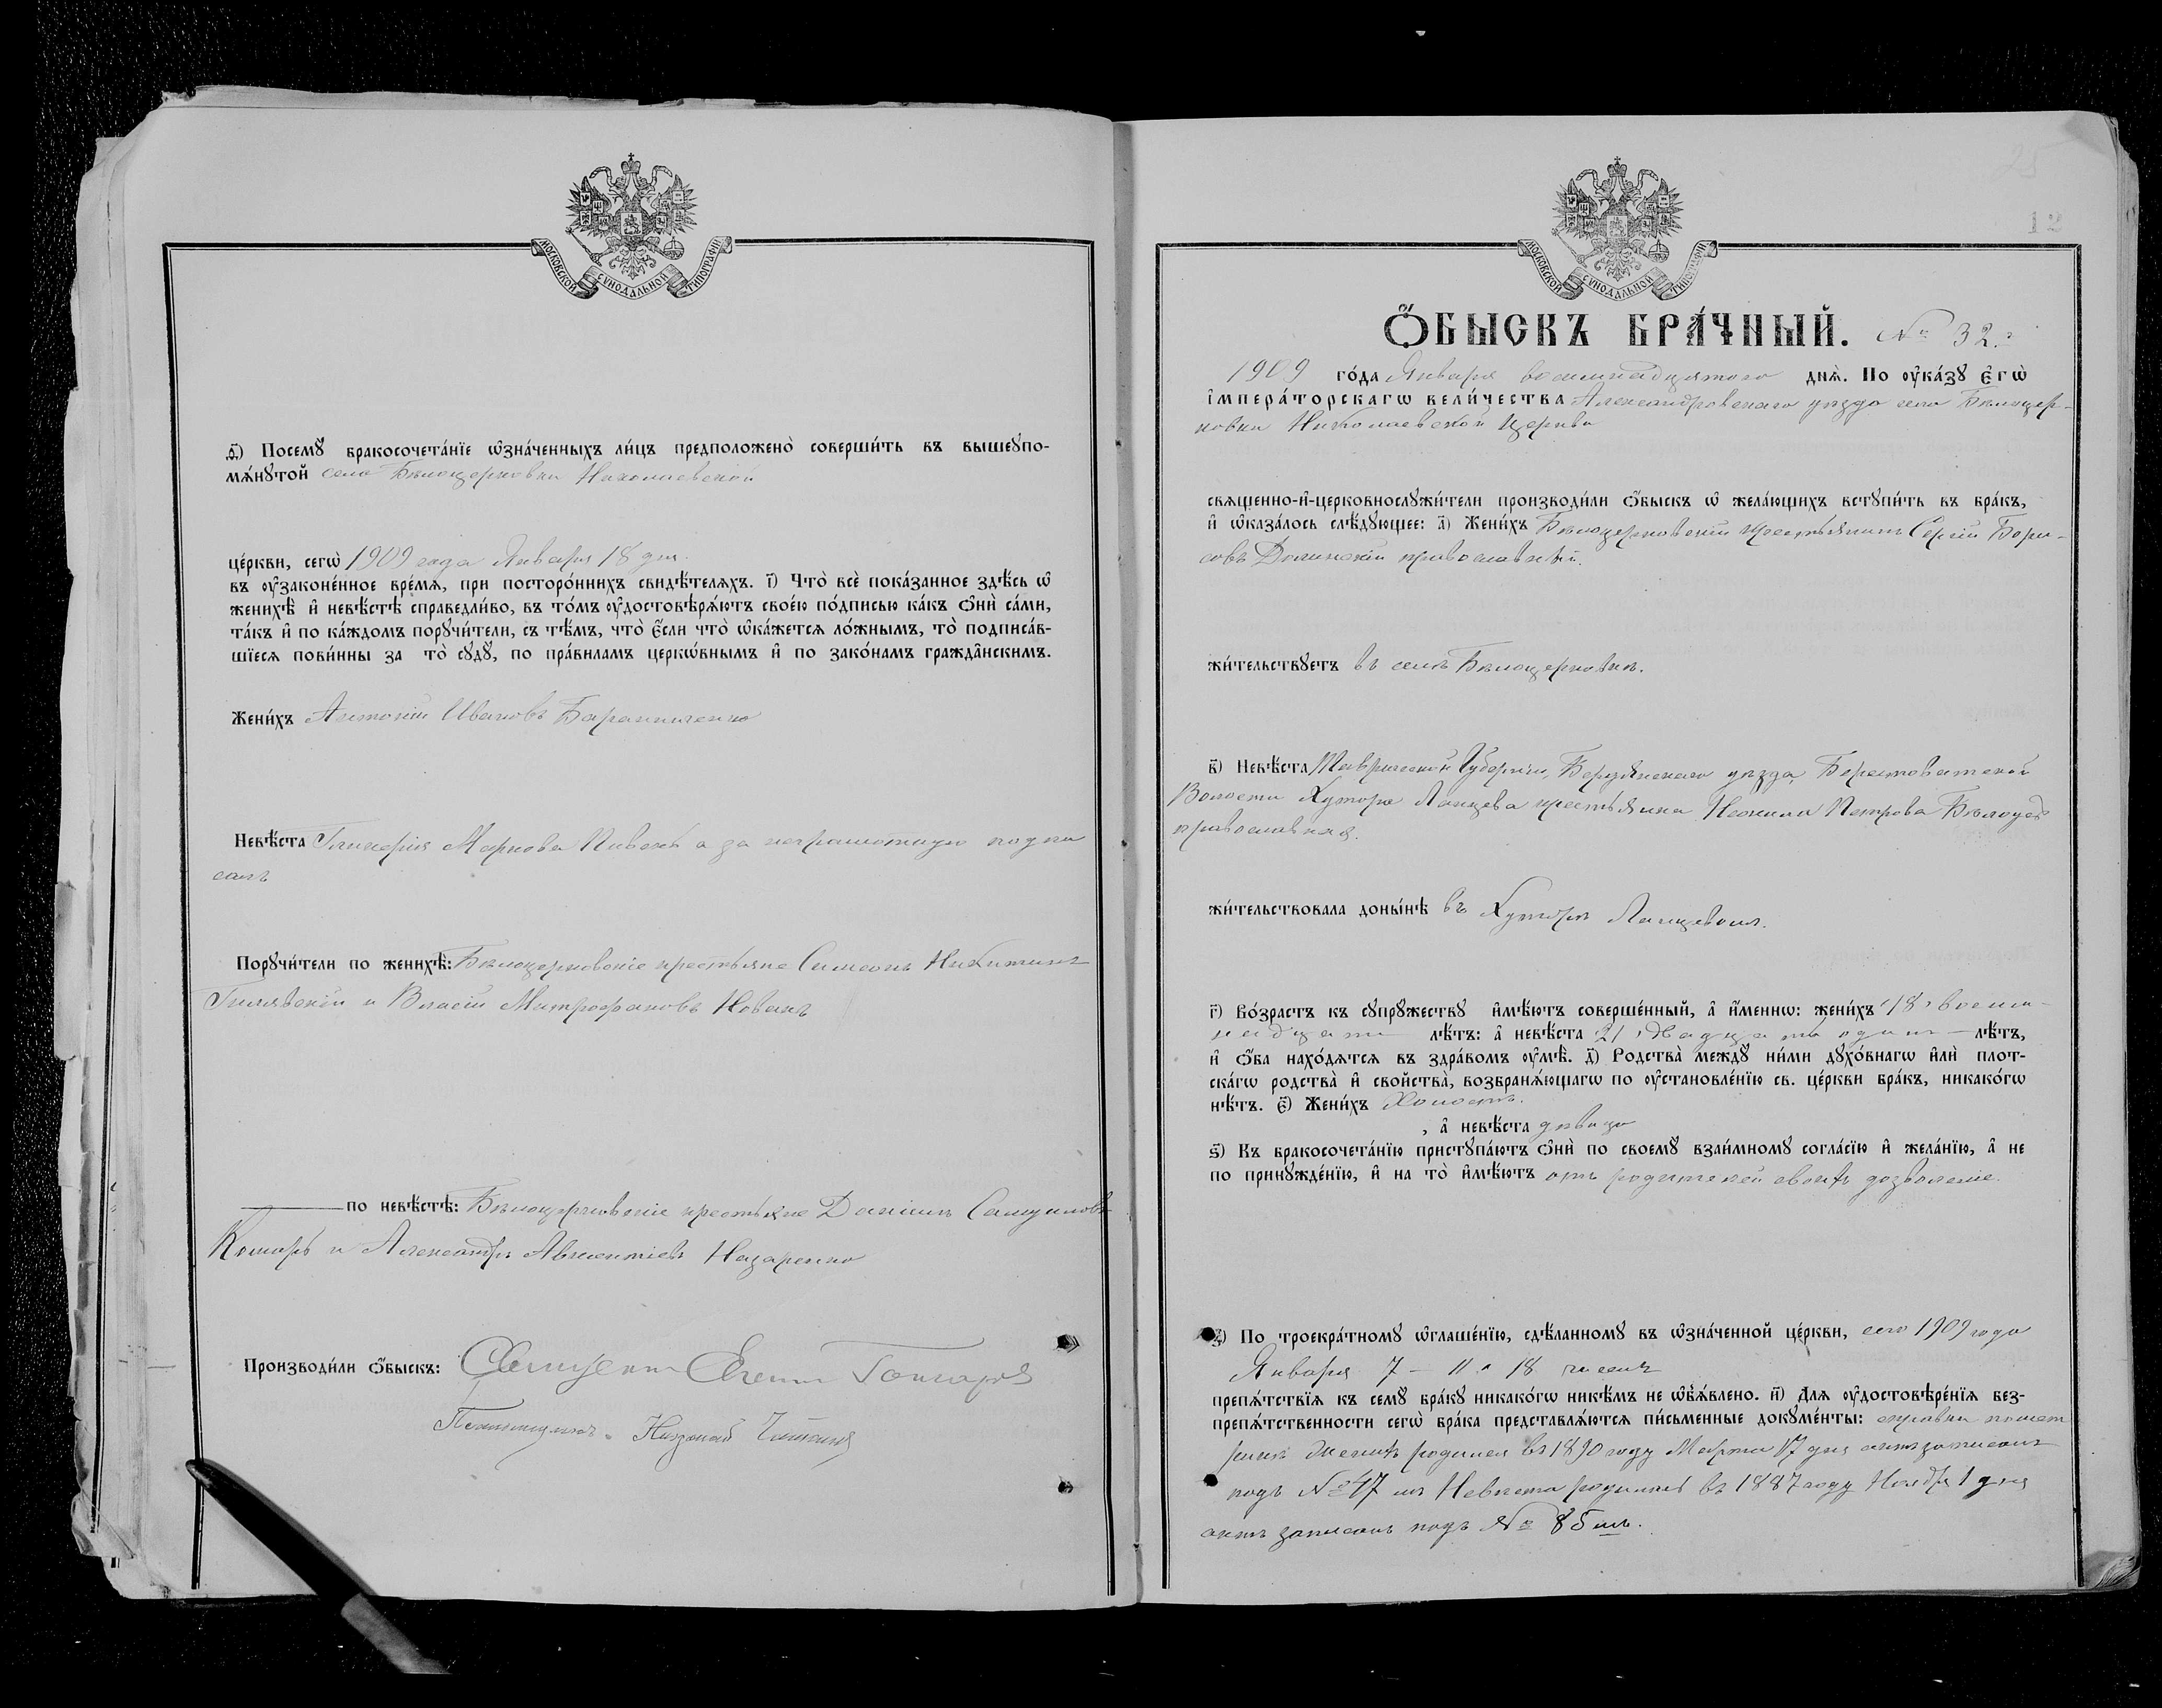 МОСКОВСКОЙ СѴНОДАЛЬНОЙ ТИПОГРАФІИ
ѳ҃) Посемꙋ̀ бракосочета́нїе ѡ҆зна́ченныхъ ли́цъ предположено̀ соверши́ть въ вышеꙋпо-
мѧ́нꙋтой села Бѣлоцерковки Николаевской
це́ркви, сегѡ̀ 1909 года Января 18 дня.
въ ᲂу҆законе́нное вре́мѧ, при посторо́ннихъ свидѣ́телѧхъ. і҃) Что̀ всѐ пока́занное здѣ́сь ѡ҆
женихѣ̀ и҆ невѣ́стѣ справедли́во, въ то́мъ ᲂу҆достовѣрѧ́ютъ свое́ю по́дписью ка́къ ѻ҆нѝ са́ми,
та́къ и҆ по ка́ждомъ порꙋчи́тели, съ тѣ́мъ, что̀ є҆́сли что̀ ѡ҆ка́жетсѧ ло́жнымъ, то̀ подписа́в-
шїесѧ пови́нны за то̀ сꙋдꙋ̀, по пра́виламъ церкѡ́внымъ и҆ по зако́намъ гражда̑нскимъ.
Жени́хъ Антоній Ивановъ Бараниченко
Невѣ́ста Гликерія Маркова Пивень а за неграмотную подпи
салъ
Порꙋчи́тели по женихѣ̀: Бѣлоцерковскіе крестьяне Симеонъ Никитинъ
Гнилявскій и Власій Митрофановъ Новакъ
по невѣ́стѣ: Бѣлоцерковскіе крестьяне Даніилъ
Комарь и Александръ Авксентіевъ Назаренко
Производи́ли ѻ҆́быскъ: Священникъ Гончаровъ
Псаломщикъ Николай
25
12
МОСКОВСКОЙ СѴНОДАЛЬНОЙ ТИПОГРАФІИ
Ѻ҆́БЫСКЪ БРА́ЧНЫЙ. № 32.
1909 го́да Января восемнадцятого днѧ̀. По ᲂу҆ка́зꙋ Є҆гѡ̀
і҆мпера́торскагѡ вели́чества Александровскаго уѣзда села Бѣлоцер-
ковки Николаевской Церкви
свѧщенно-и҆-церковнослꙋжи́тели производи́ли ѻ҆́быскъ ѡ҆ жела́ющихъ встꙋпи́ть въ бра́къ,
и҆ ѡ҆каза́лось слѣ́дꙋющее: а҃) Жени́хъ Бѣлоцерковскій крестьянинъ Сергій Бори-
совъ Долинскій православный.
жи́тельствꙋетъ въ селѣ Бѣлоцерковкѣ.
в҃) Невѣ́ста Таврической Губерніи, Бердянскаго уѣзда, Берестоватской
Волости Хутора Ланцева крестьянка Неонила Петрова
православная.
жи́тельствовала доны́нѣ въ Хуторѣ Ланцевомъ.
г҃) Во́зрастъ къ сꙋпрꙋ́жествꙋ и҆мѣ́ютъ соверше́нный, а҆ и҆́меннѡ: жени́хъ 18, восем-
надцать лѣ́тъ: а҆ невѣ́ста 21, двадцать одинъ лѣ́тъ,
и҆ ѻ҆́ба нахо́дѧтсѧ въ здра́вомъ ᲂу҆мѣ̀. д҃) Родства̀ междꙋ̀ ни́ми дꙋхо́внагѡ и҆лѝ плот-
ска́гѡ родства̀ и҆ сво́йства, возбранѧ́ющагѡ по ᲂу҆становле́нїю св. це́ркви бра́къ, никако́гѡ
нѣ́тъ. є҃) Жени́хъ Холостъ.
, а҆ невѣ́ста дѣвица
ѕ҃) Къ бракосочета́нїю пристꙋпа́ютъ ѻ҆нѝ по своемꙋ̀ взаи́мномꙋ согла́сїю и҆ жела́нїю, а҆ не
по принꙋжде́нїю, и҆ на то̀ и҆мѣ́ютъ отъ родителей своихъ дозволеніе.
з҃) По троекра́тномꙋ ѡ҆глаше́нїю, сдѣ́ланномꙋ въ ѡ҆зна́ченной це́ркви, сего 1909 года
Января 7 – 11 и 18 чиселъ
препѧ́тствїѧ къ семꙋ̀ бра́кꙋ никако́гѡ никѣ́мъ не ѡ҆б̾ѧ́влено. и҃) Длѧ ᲂу҆достовѣре́нїѧ без-
препѧ́тственности сегѡ̀ бра́ка представлѧ́ютсѧ пи́сьменные докꙋме́нты: справки помет
рикѣ Женихъ родился въ 1890 году Марта 17 дня актъ записанъ
подъ № 47 мъ Невѣста родилась въ 1887 году Ноября 1 дня
актъ записанъ подъ № 85 мъ.